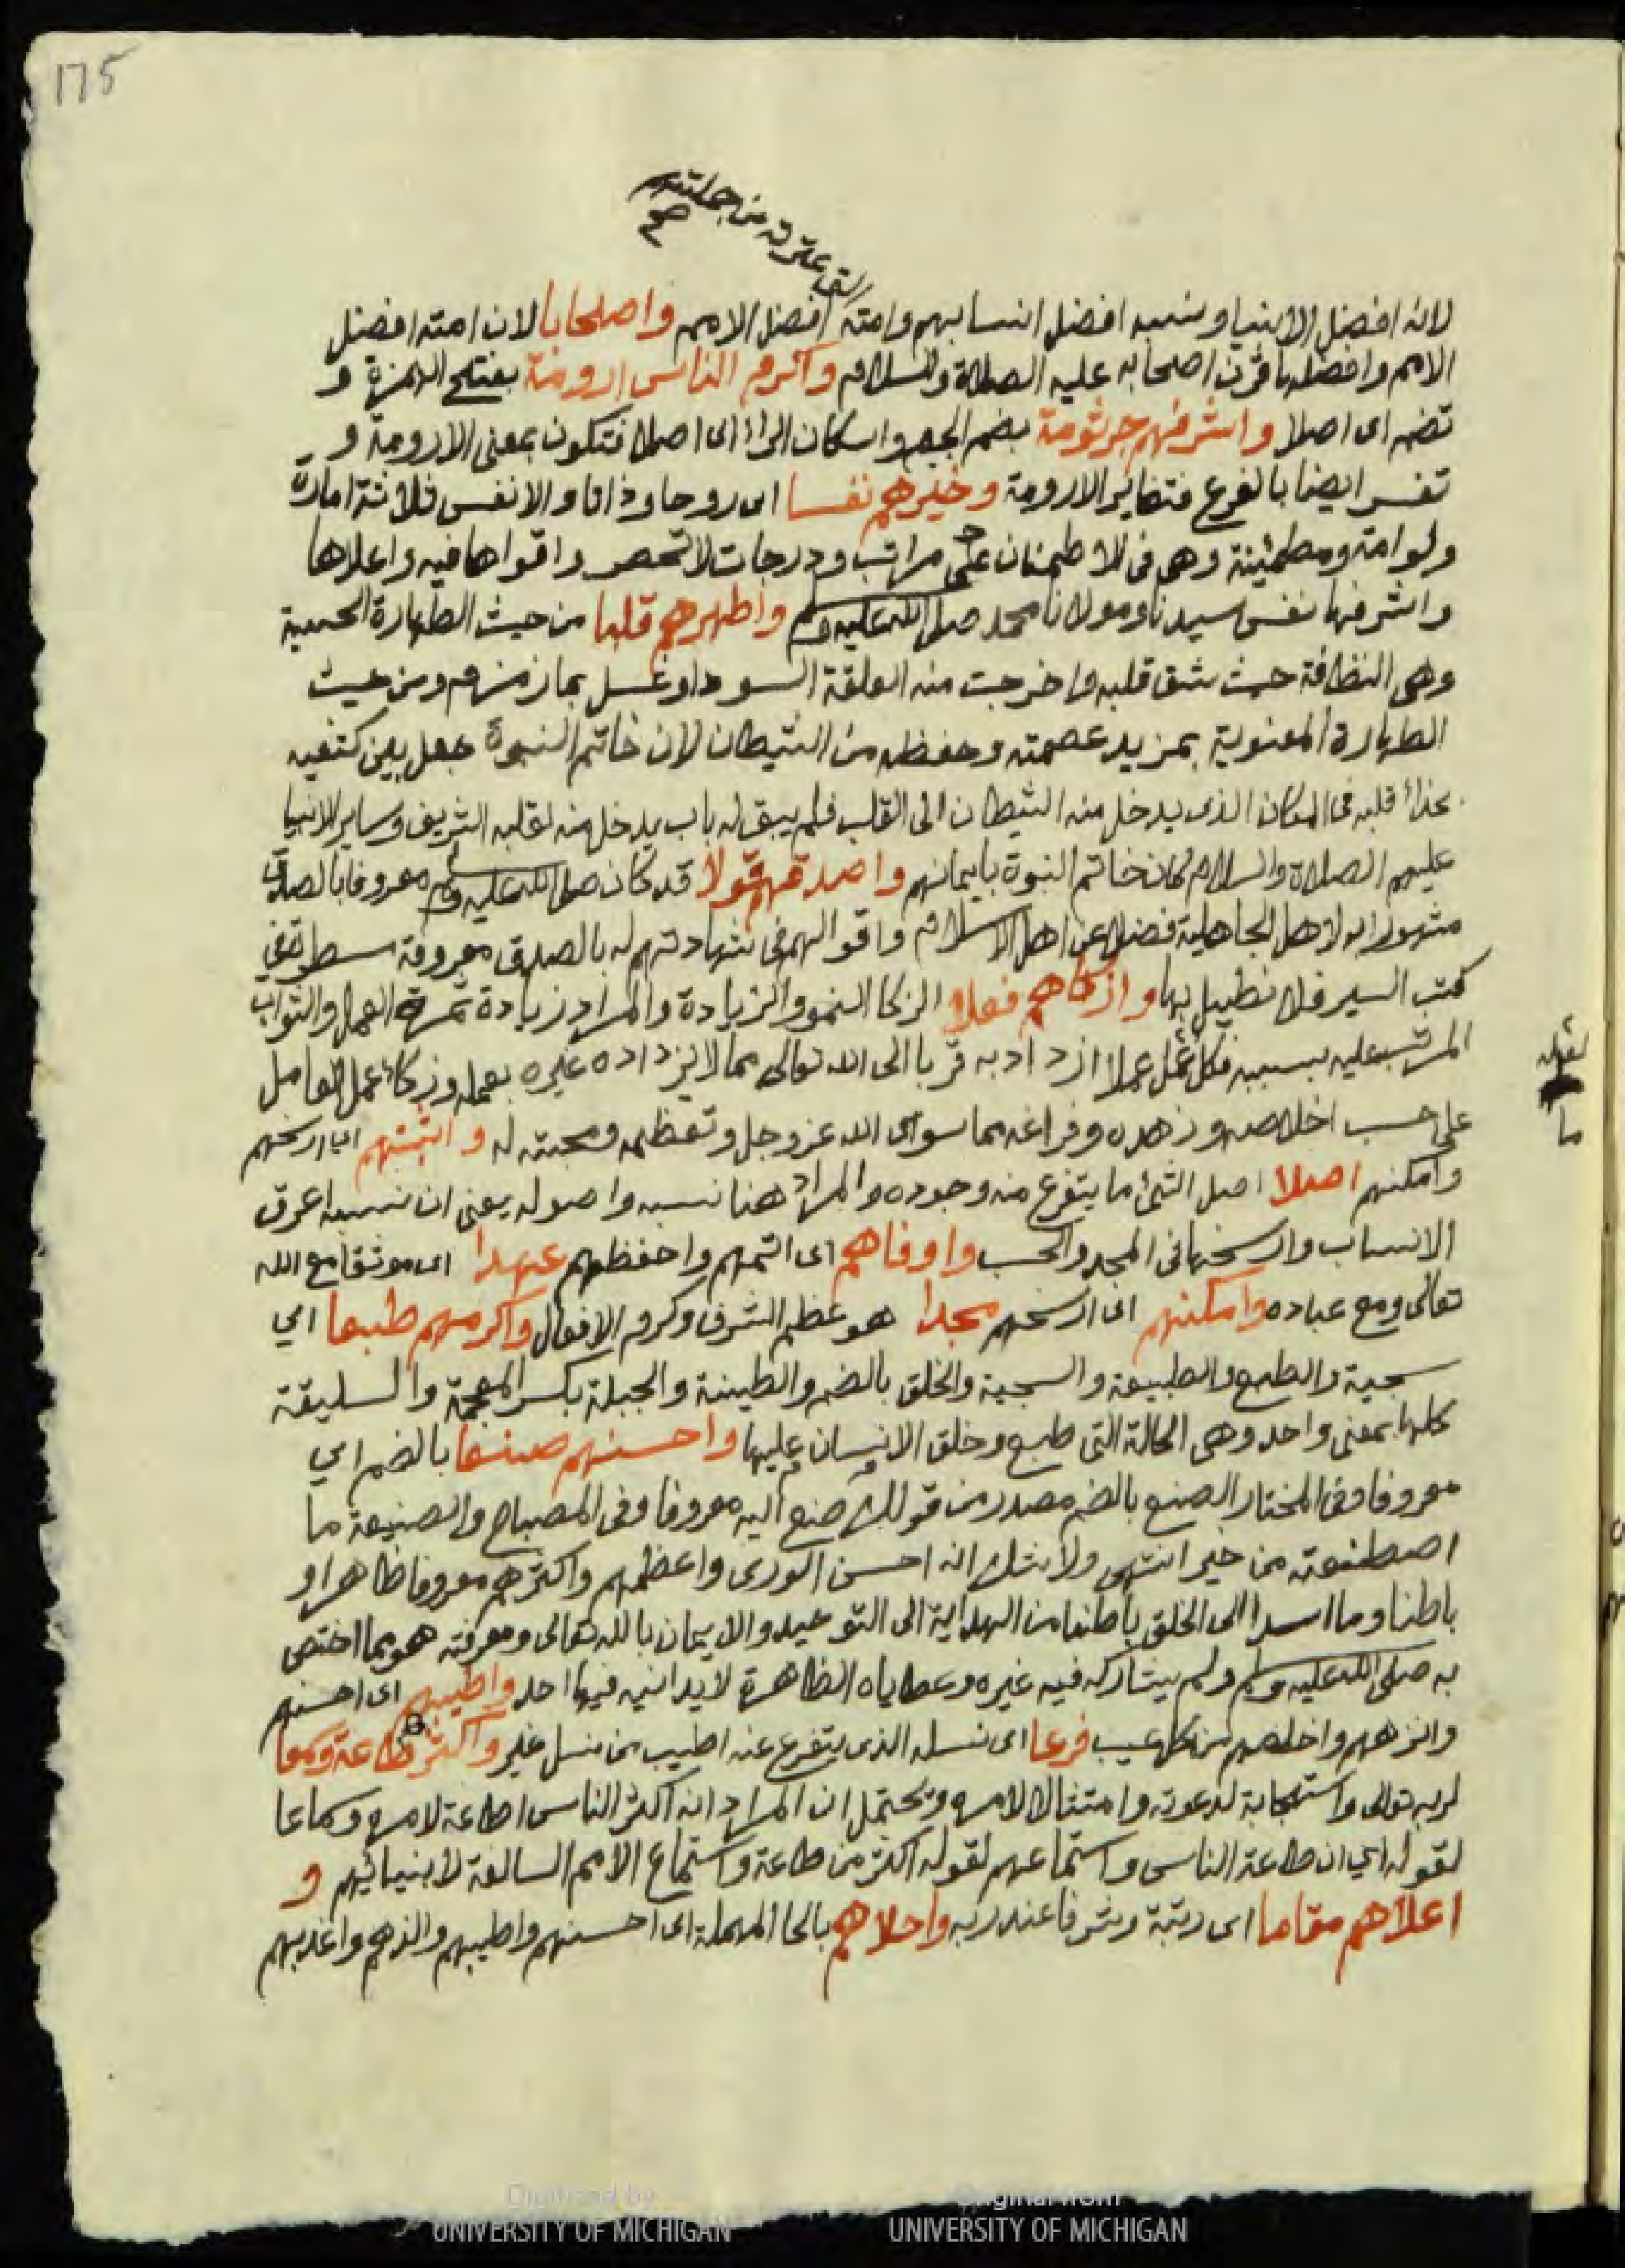 175
التي عترته من جملتهم
صح
لانه افضل الانبيا ونسبه افضل انسابهم وامته افضل الامم واصحابا لان امته افضل
الامم وافضلها قرن اصحابه عليه الصلاة والسلام واكرم الناس ارومة بفتح الهمزة و
تضم اى اصلا واشرفهم جرثومة بضم الجيم واسكان الرا اى اصلا فتكون بمعنى الارومة و
تفسر ايضا بالفرع فتغاير الارومة وخيرهم نفسا اى روحا وذاتا والانفس ثلاثة امارة
ولوامة ومطمئنة وهى فى الاطمئنان على مراتب ودرجات لا تحصر واقواها فيه واعلاها
واشرفها نفس سيدنا ومولانا محمد صلى الله عليه وسلم واطهرهم قلبا من حيث الطهارة الحسية
وهى النظافة حيث شق قلبه واخرجت منه العلقة السودا وغسل بماء زمزم ومن حيث
الطهارة المعنوية بمزيد عصمته وحفظه من الشيطان لان خاتم النبوة جعل بين كتفيه
بحذاء قلبه فى المكان الذى يدخل منه الشيطان الى القلب فلم يبق له باب يدخل منه لقلبه الشريف وساير الانبيا
عليهم الصلاة والسلام كان خاتم النبوة بايمانهم واصدقهم قولا قد كان صلى الله عليه وسلم معروفا بالصدق
مشهورا به لاهل الجاهلية فضلا عن اهل الاسلام واقوالهم فى شهادتهم له بالصدق معروفة مسطورة فى
كتب السير فلا نطيل بها وازكاهم فعلا الزكا النمو والزيادة والمراد زيادة ثمرة العمل والثواب
المرتب عليه بسببه فكل عمل عملا ازداد به قربا الى الله تعالى مما لا يزداده غيره بعمله وزكاء عمل العامل
لعله
ما
على حسب اخلاصه وزهده وفراغه مما سوى الله عز وجل وتعظيمه ومحبته له واثبتهم اى ارسخهم
وامكنهم اصلا اصل الشئ ما يتفرع منه وجوده والمراد هنا نسبه واصوله يعنى ان نسبه اعرق
الانساب وارسخها فى المجد والحسب واوفاهم اى اتمهم واحفظهم عهدا اى موثقا مع الله
تعالى ومع عباده وامكنهم اى ارسخهم مجدا هو عظم الشرف وكرم الافعال واكرمهم طبعا اي
سجية والطبع والطبيعة والسجية والخلق بالضم والطينة والجبلة بكسر المعجمة والسليقة
كلها بمعنى واحد وهى الحالة التى طبع وخلق الانسان عليها واحسنهم صنعا بالضم اي
معروفا وفى المختار الصنع بالضم مصدر من قولك صنع اليه معروفا وفى المصباح والصنيعة ما
اصطنعته من خير انتهى ولا شك انه احسن الورى واعظمهم واكثرهم معروفا ظاهرا و
باطنا وما اسدا الى الخلق باطنا من الهداية الى التوحيد والايمان بالله تعالى ومعرفته هو مما اختص
به صلى الله عليه وسلم ولم يشاركه فيه غيره وعطاياه الظاهرة لا يدانيه فيها احد واطيبهم اى احسنهم
وانزههم واخلصهم من كل عيب فرعا اى نسله الذى يتفرع عنه اطيب من نسل غيره واكثر طاعة وسمعا
لربه تعالى واستجابة لدعوته وامتثالا لامره ويحتمل ان المراد انه اكثر الناس اطاعة لامره وسماعا
لقوله اي ان طاعة الناس واستماعهم لقوله اكثر من طاعة واستماع الامم السالفة لانبيائهم و
اعلاهم مقاما اى رتبة وشرفا عند ربه واحلاهم بالحا المهملة اى احسنهم واطيبهم والذهم واعذبهم
Digitized by
UNIVERSITY OF MICHIGAN
Original from
UNIVERSITY OF MICHIGAN